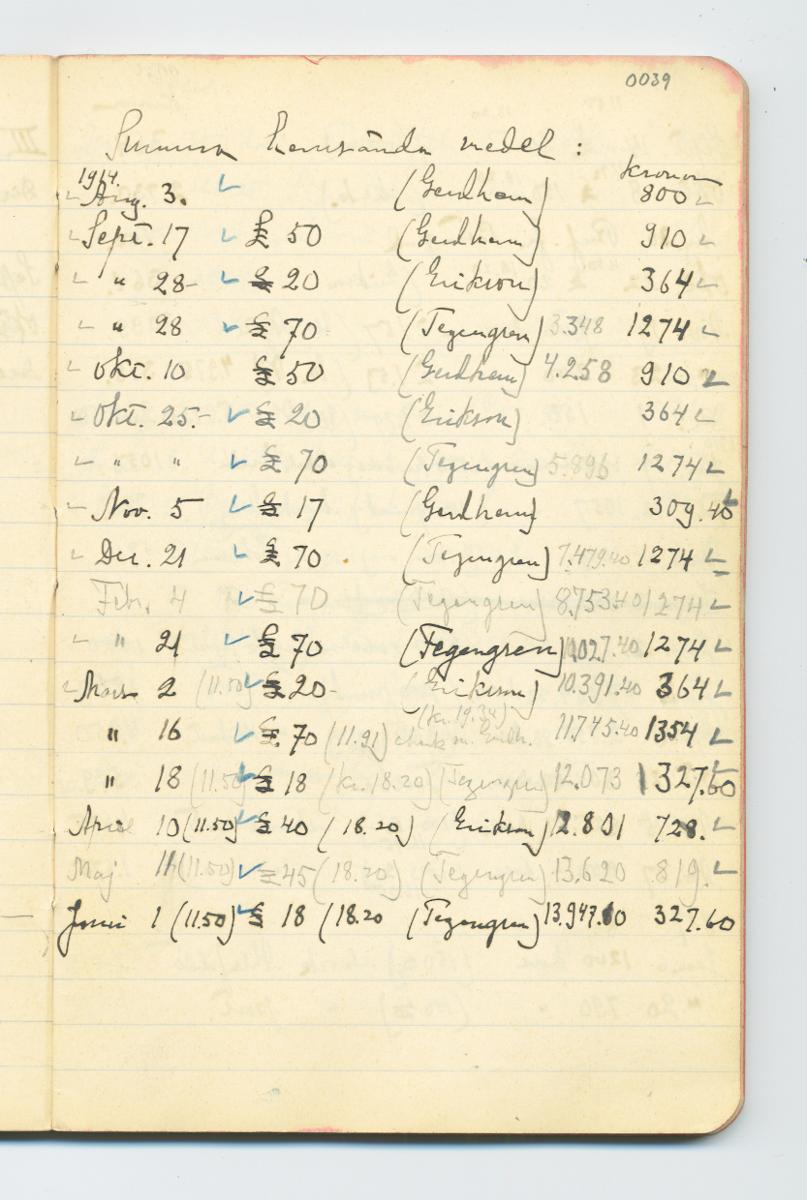 0039
Summa hemsända medel :
kronor
1914.
Aug. 3. (Gerdham) 800
Sept. 17 £ 50 (Gerdham) 910
" 28- £ 20 (Erikson) 364
" 28 £ 70 (Tegengren) 3.348 1274
Okt. 10 £ 50 (Gerdham) 4.258 910
Okt. 25.- £ 20 (Erikson) 364
" " £ 70 (Tegengren) 5.896 1274
Nov. 5 £ 17 (Gerdham) 309.40
Dec. 21 £ 70 (Tegengren) 7.479.40 1274
Febr. 4 £ 70 (Tegengren) 8.753.40 1274
" 21 £ 70 (Tegengren) 10.027.40 1274
Mars 2 (11.50) £ 20- (Erikson) 10.391.40 364
(kr. 19.34)
" 16 £ 70 (11.91) check m. 11.745.40 1354
" 18 (11.50) £ 18 (kr. 18.20) (Tegengren) 12.073 327.60
April 10 (11.50) £ 40 (18.20) (Erikson) 12.801 728.
Maj 11 (11.50) £ 45 (18.20) (Tegengren) 13.620 819.
Juni 1 (11.50) £ 18 (18.20 (Tegengren) 13.947.60 327.60